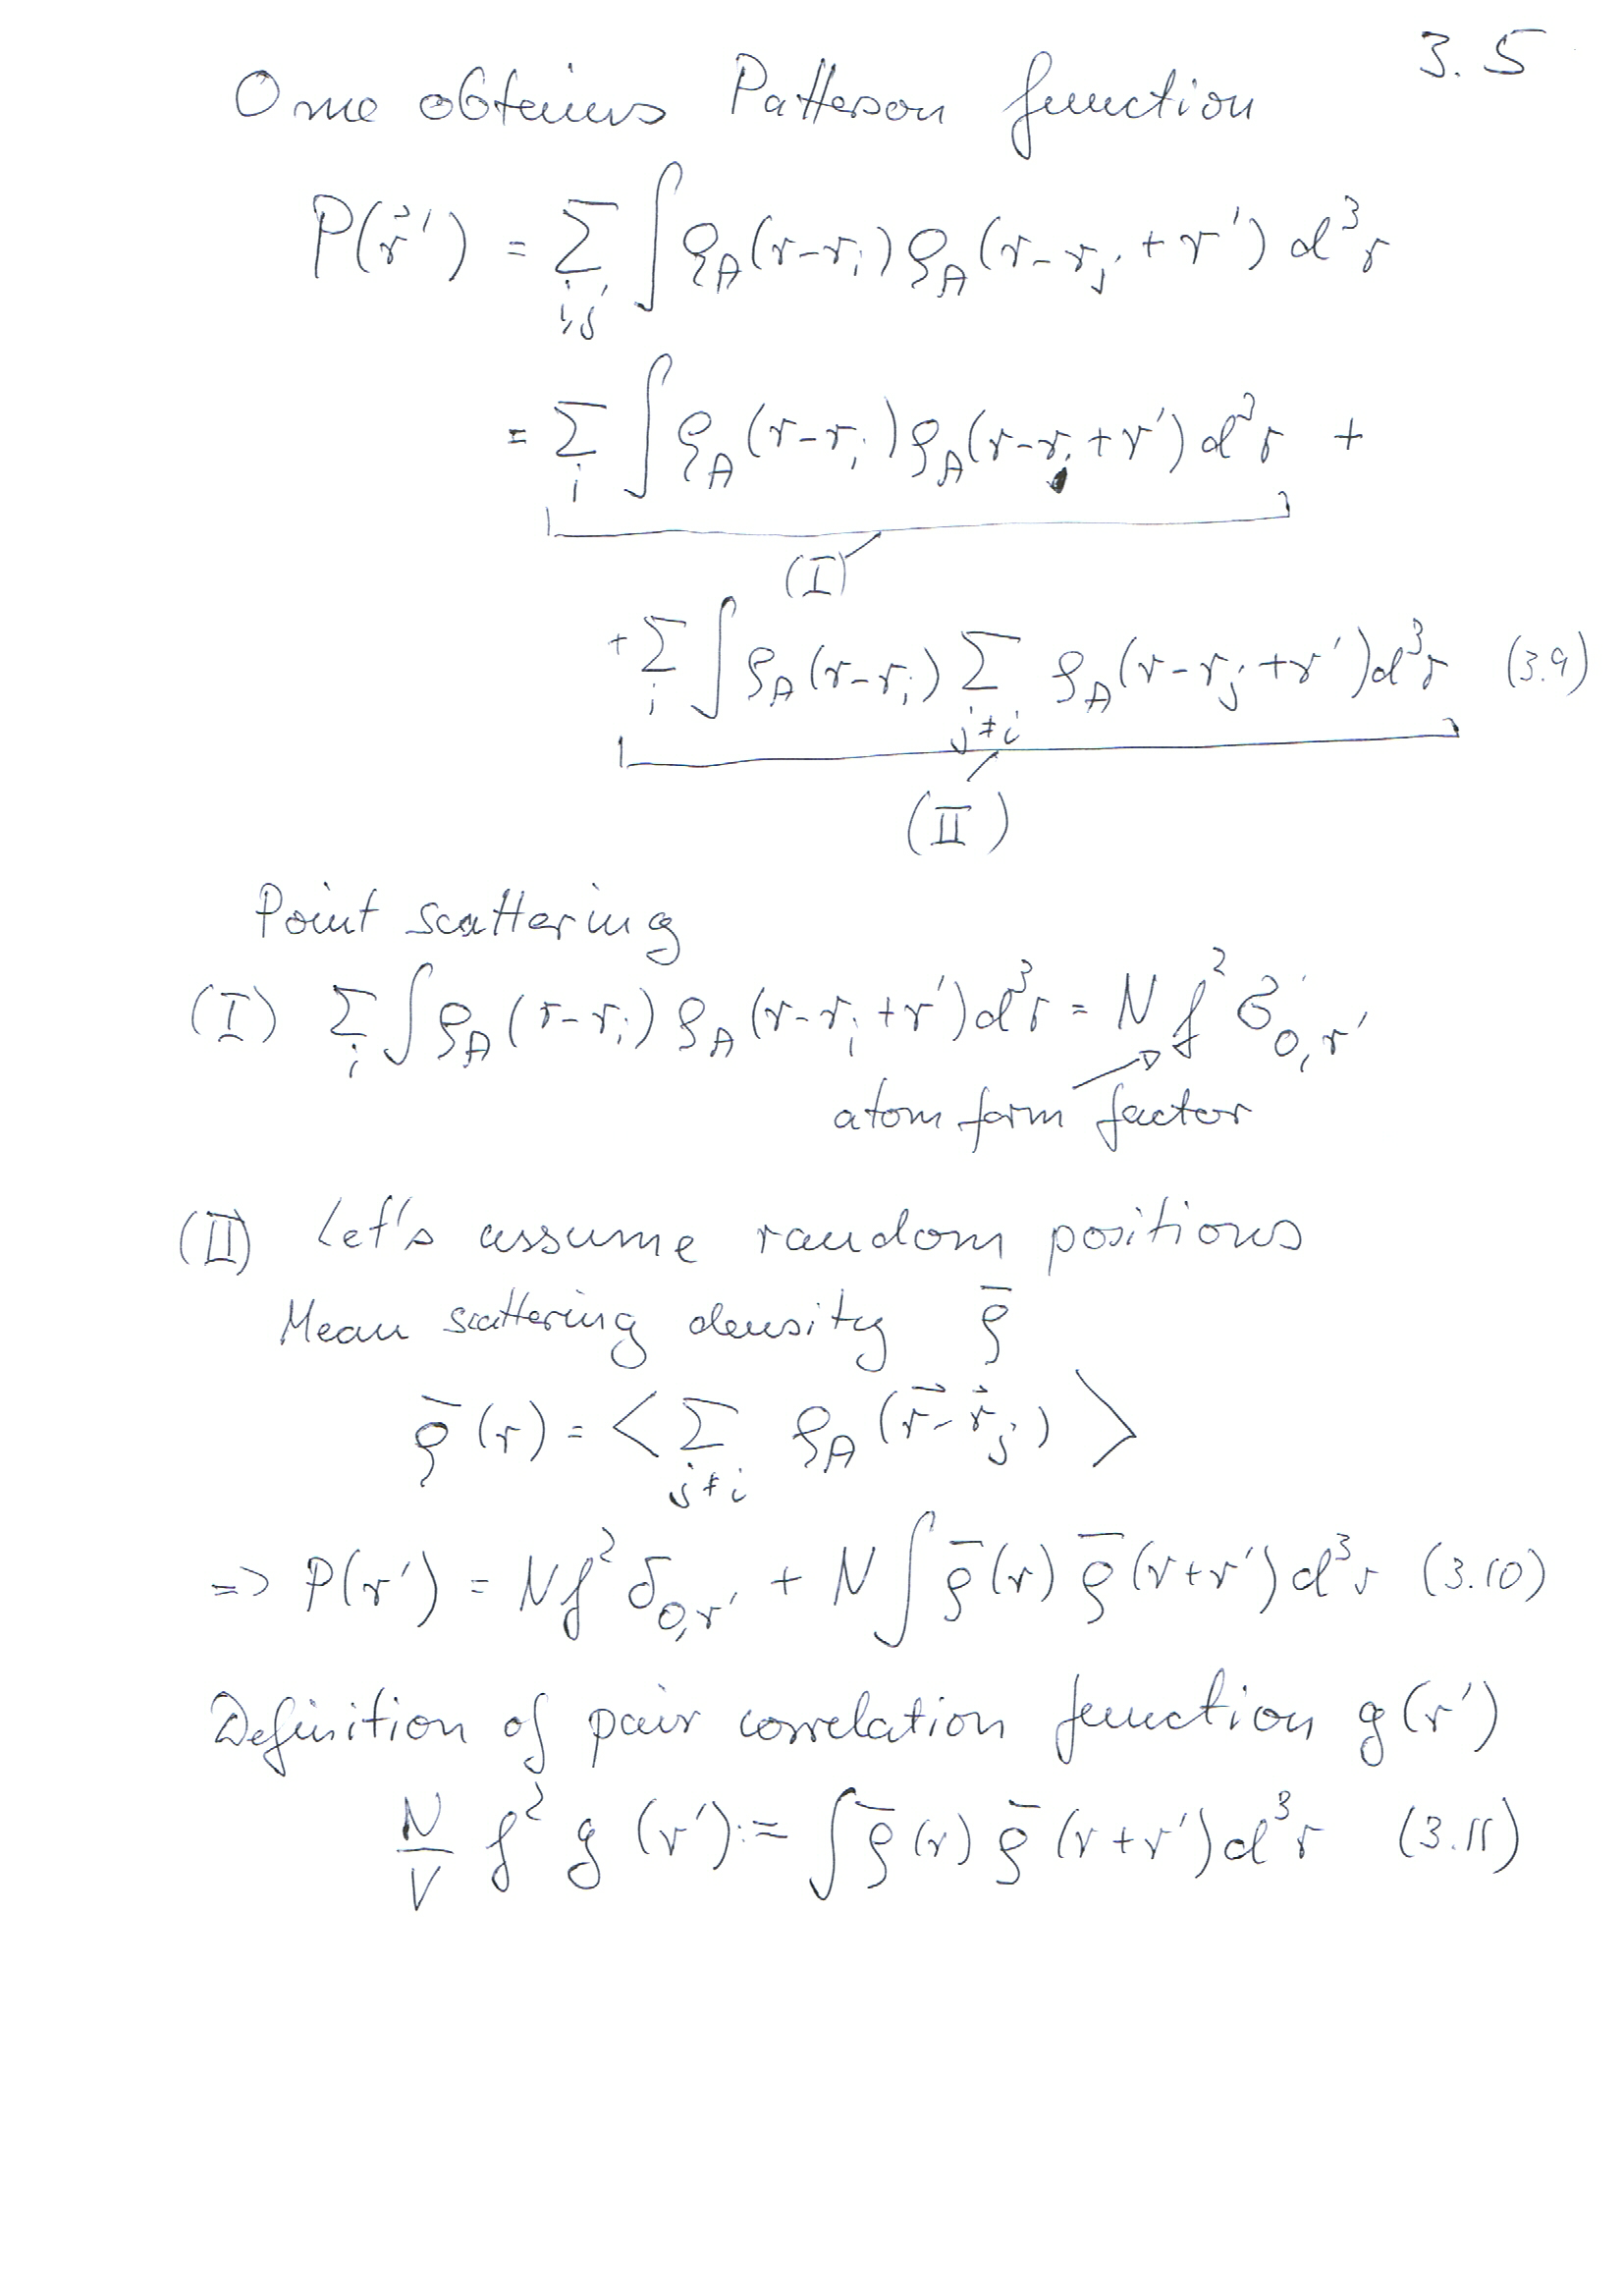 3.5
One obtains Patterson function
P(r⃗') = Σ_{i,j} ∫ ρ_A(r-r_i) ρ_A(r-r_j+r') d³r
= Σ_i ∫ ρ_A(r-r_i) ρ_A(r-r_i+r') d³r +
(I)
+ Σ_i ∫ ρ_A(r-r_i) Σ_{j≠i} ρ_A(r-r_j+r') d³r (3.9)
(II)
Point scattering
(I) Σ_i ∫ ρ_A(r-r_i) ρ_A(r-r_i+r') d³r = N f² δ_{0,r'}
atom form factor
(II) Let's assume random positions
Mean scattering density ρ̄
ρ̄(r) = < Σ_{j≠i} ρ_A(r⃗-r⃗_j) >
=> P(r') = N f² δ_{0,r'} + N ∫ ρ̄(r) ρ̄(r+r') d³r (3.10)
Definition of pair correlation function g(r')
N/V f² g(r') := ∫ ρ̄(r) ρ̄(r+r') d³r (3.11)